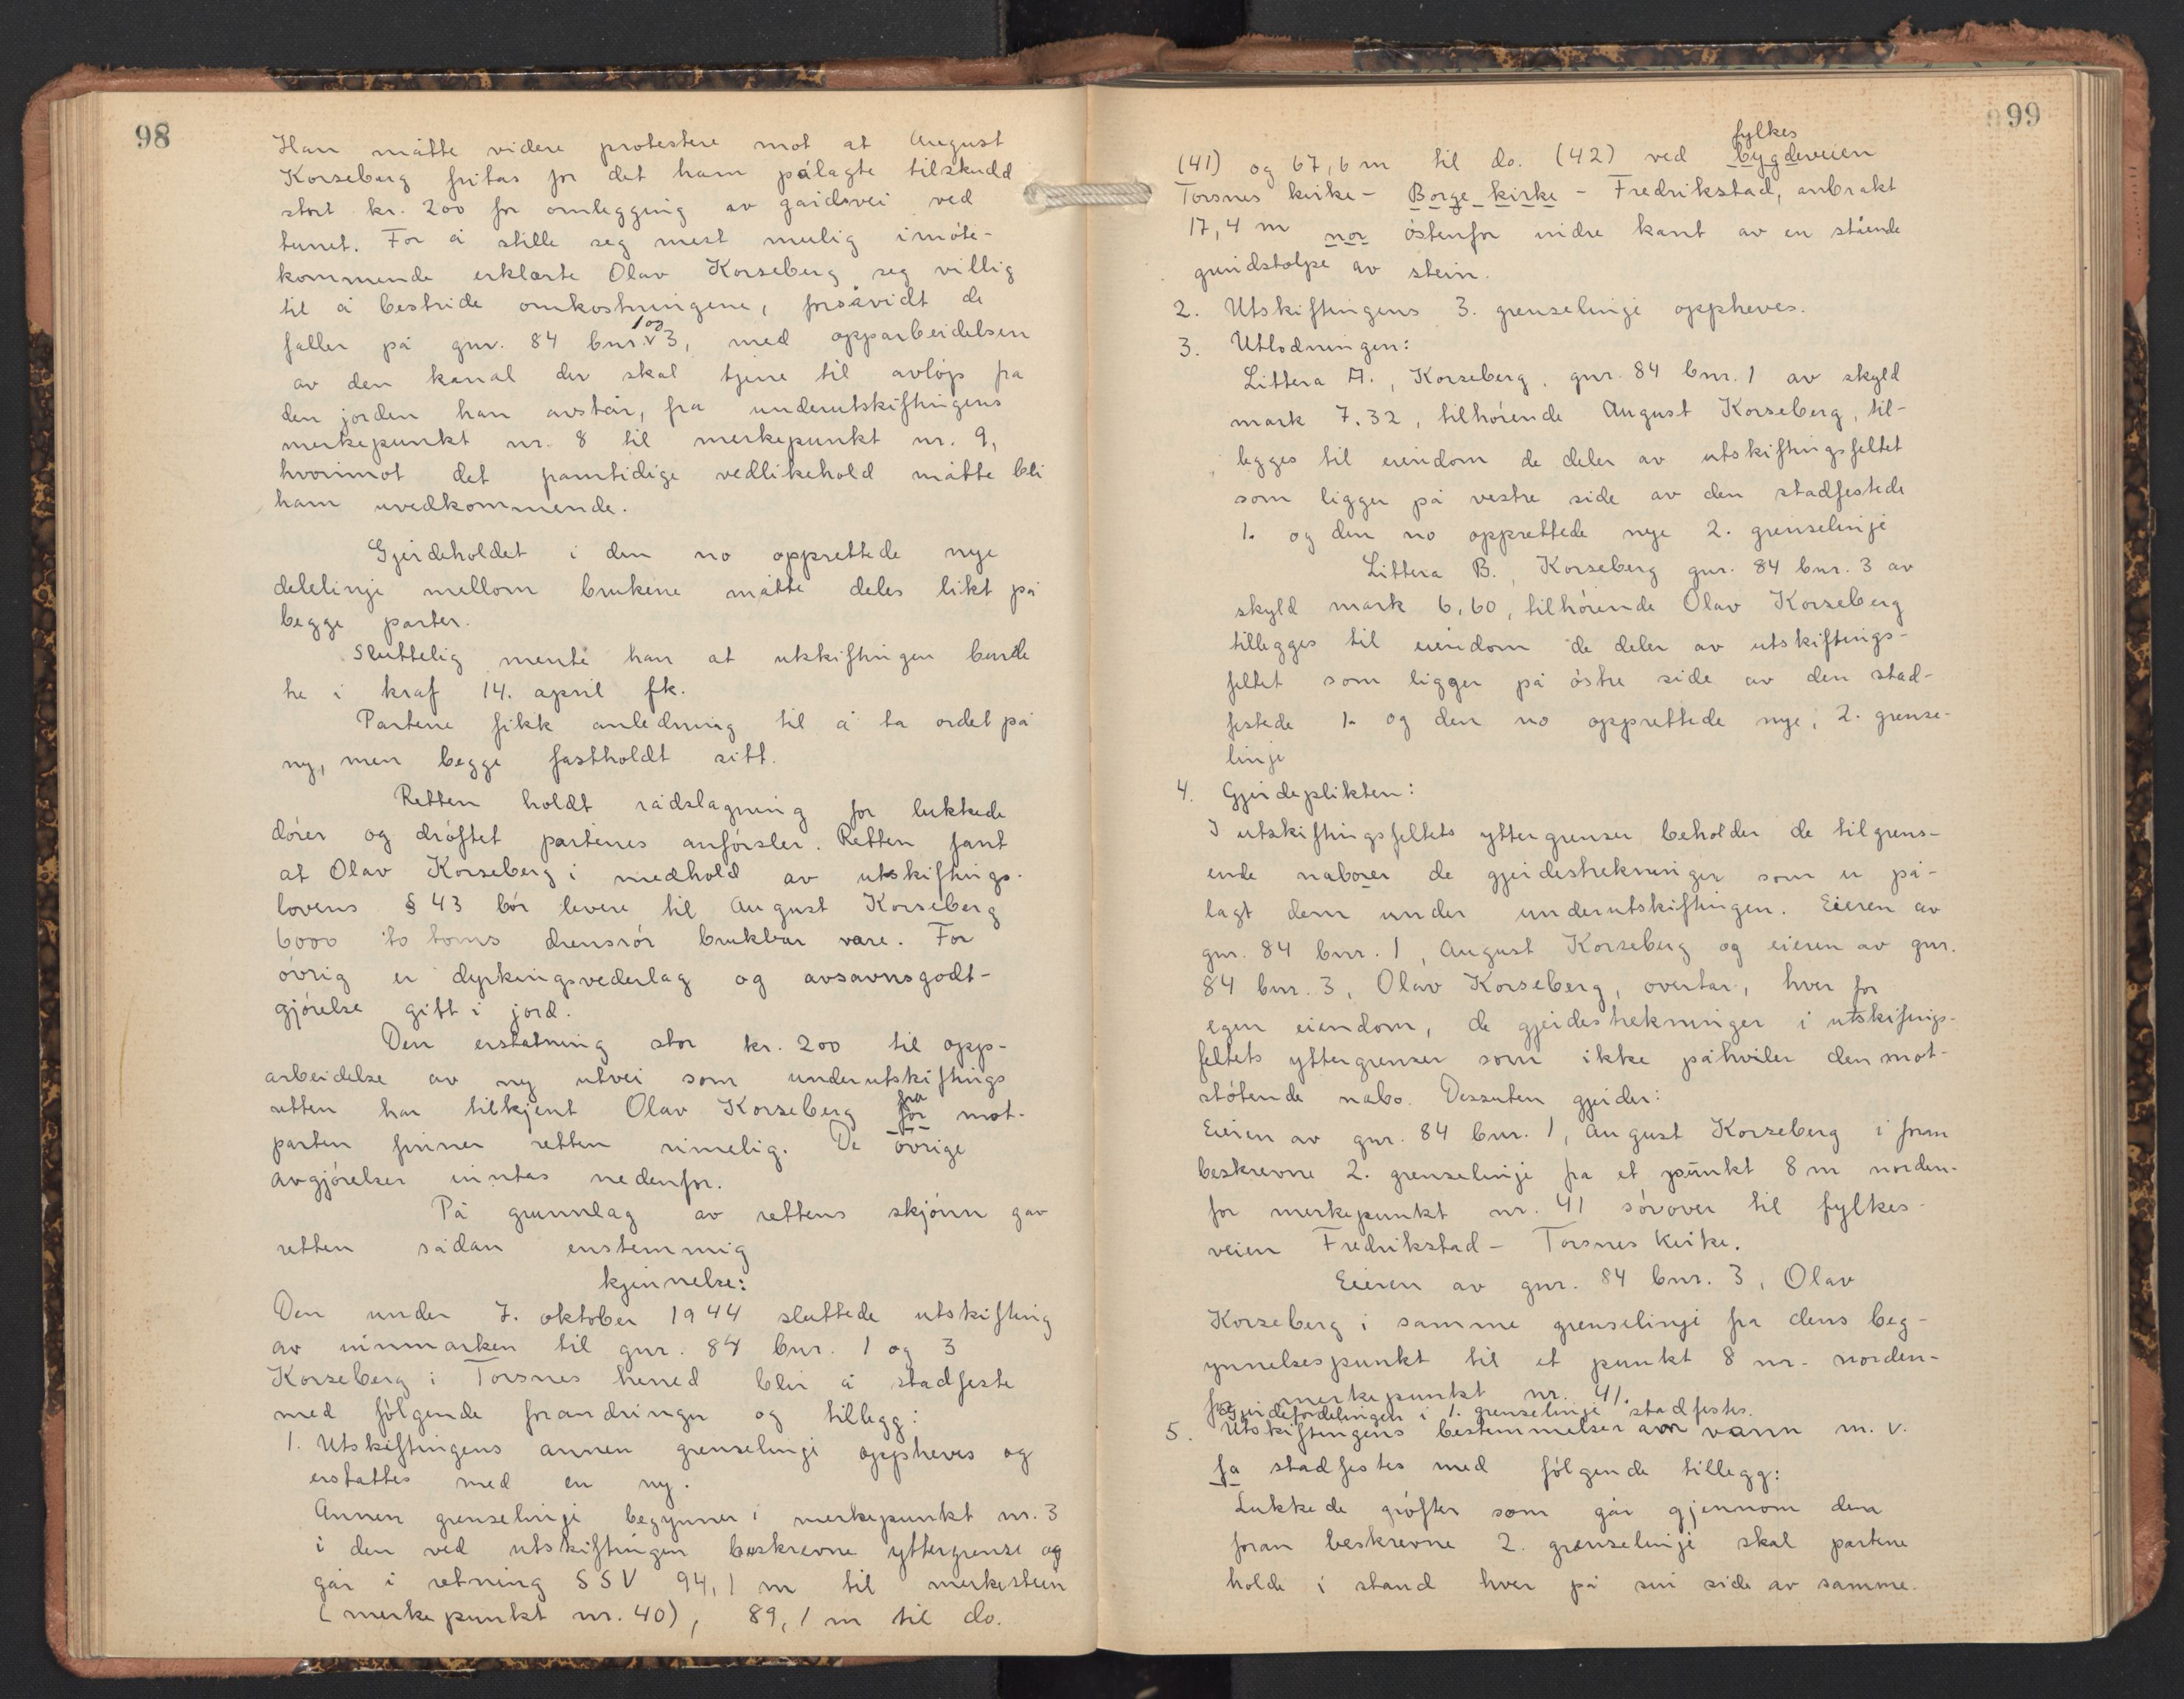 98
Han måtte videre protestere mot at August
Korseberg fritas for det ham pålagte tilskudd
stort kr. 200 for omlegging av gårdsvei ved
tunet. For å stille seg mest mulig imøte-
kommende erklærte Olav Korseberg seg villig
til å bestride omkostningene, forsåvidt de
1 og
faller på gnr. 84 bnr. v 3, med opparbeidelsen
av den kanal der skal tjene til avløp fra
den jorden han avstår, fra underutskiftingens
merkepunkt nr. 8 til merkepunkt nr. 9,
hvorimot det framtidige vedlikehold måtte bli
ham uvedkommende.
Gjerdeholdet i den no opprettede nye
delelinje mellom brukene måtte deles likt på
begge parter.
Sluttelig mente han at utskiftingen burde
tre i kraf 14. april fk.
Partene fikk anledning til å ta ordet på
ny, men begge fastholdt sitt.
Retten holdt rådslagning for lukkede
dører og drøftet partenes anførsler. Retten fant
at Olav Korseberg i medhold av utskiftings-
lovens § 43 bør levere til August Korseberg
6000 to toms drensrør brukbar vare. For
øvrig er dyrkingsvederlag og avsavnsgodt-
gjørelse gitt i jord.
Den erstatning stor kr. 200 til opp-
arbeidelse av ny utvei som underutskiftings
fra
retten har tilkjent Olav Korseberg for mot-
parten finner retten rimelig. De øvrige
avgjørelser inntas nedenfor.
På grunnlag av rettens skjønn gav
retten sådan enstemmig
kjennelse:
Den under 7. oktober 1944 sluttede utskifting
av innmarken til gnr. 84 bnr. 1 og 3
Korseberg i Torsnes herred blir å stadfeste
med følgende forandringer og tillegg:
1. Utskiftingens annen grenselinje oppheves og
erstattes med en ny.
Annen grenselinje begynner i merkepunkt nr. 3
i den ved utskiftingen beskrevne yttergrense og
går i retning SSV 94,1 m til merkestein
(merkepunkt nr. 40), 89,1 m til do.
99
fylkes
(41) og 67,6 m til do. (42) ved bygdeveien
Torsnes kirke - Borge kirke - Fredrikstad, anbrakt
17,4 m nor østenfor indre kant av en stående
grindstolpe av stein.
2. Utskiftingens 3. grenselinje oppheves.
3. Utlodningen:
Littera A., Korseberg, gnr. 84 bnr. 1 av skyld
mark 7.32, tilhørende August Korseberg, til-
legges til eiendom de deler av utskiftingsfeltet
som ligger på vestre side av den stadfestede
1. og den no opprettede nye 2. grenselinje
Littera B., Korseberg gnr. 84 bnr. 3 av
skyld mark 6,60, tilhørende Olav Korseberg
tillegges til eiendom de deler av utskiftings-
feltet som ligger på østre side av den stad-
festede 1. og den no opprettede nye, 2. grense-
linje
4. Gjerdeplikten:
I utskiftingsfeltets yttergrenser beholder de tilgrens-
ende naboer de gjerdestrekninger som er på-
lagt dem under underutskiftingen. Eieren av
gnr. 84 bnr. 1, August Korseberg og eieren av gnr.
84 bnr. 3, Olav Korseberg, overtar, hver for
egen eiendom, de gjerdestrekninger i utskifings-
feltets yttergrenser som ikke påhviler den mot-
støtende nabo. Dessuten gjerder:
Eieren av gnr. 84 bnr. 1, August Korseberg i foran
beskrevne 2. grenselinje fra et punkt 8 m norden-
for merkepunkt nr. 41 sørover til fylkes-
veien Fredrikstad - Torsnes kirke.
Eieren av gnr. 84 bnr. 3, Olav
Korseberg i samme grenselinje fra dens beg-
ynnelsespunkt til et punkt 8 m. norden-
for merkepunkt nr. 41.
Gjerdefordelingen i 1. grenselinje stadfestes.
5. Utskiftingens bestemmelser om vann m. v.
fa stadfestes med følgende tillegg:
Lukkede grøfter som går gjennom den
foran beskrevne 2. grenselinje skal partene
holde i stand hver på sin side av samme.